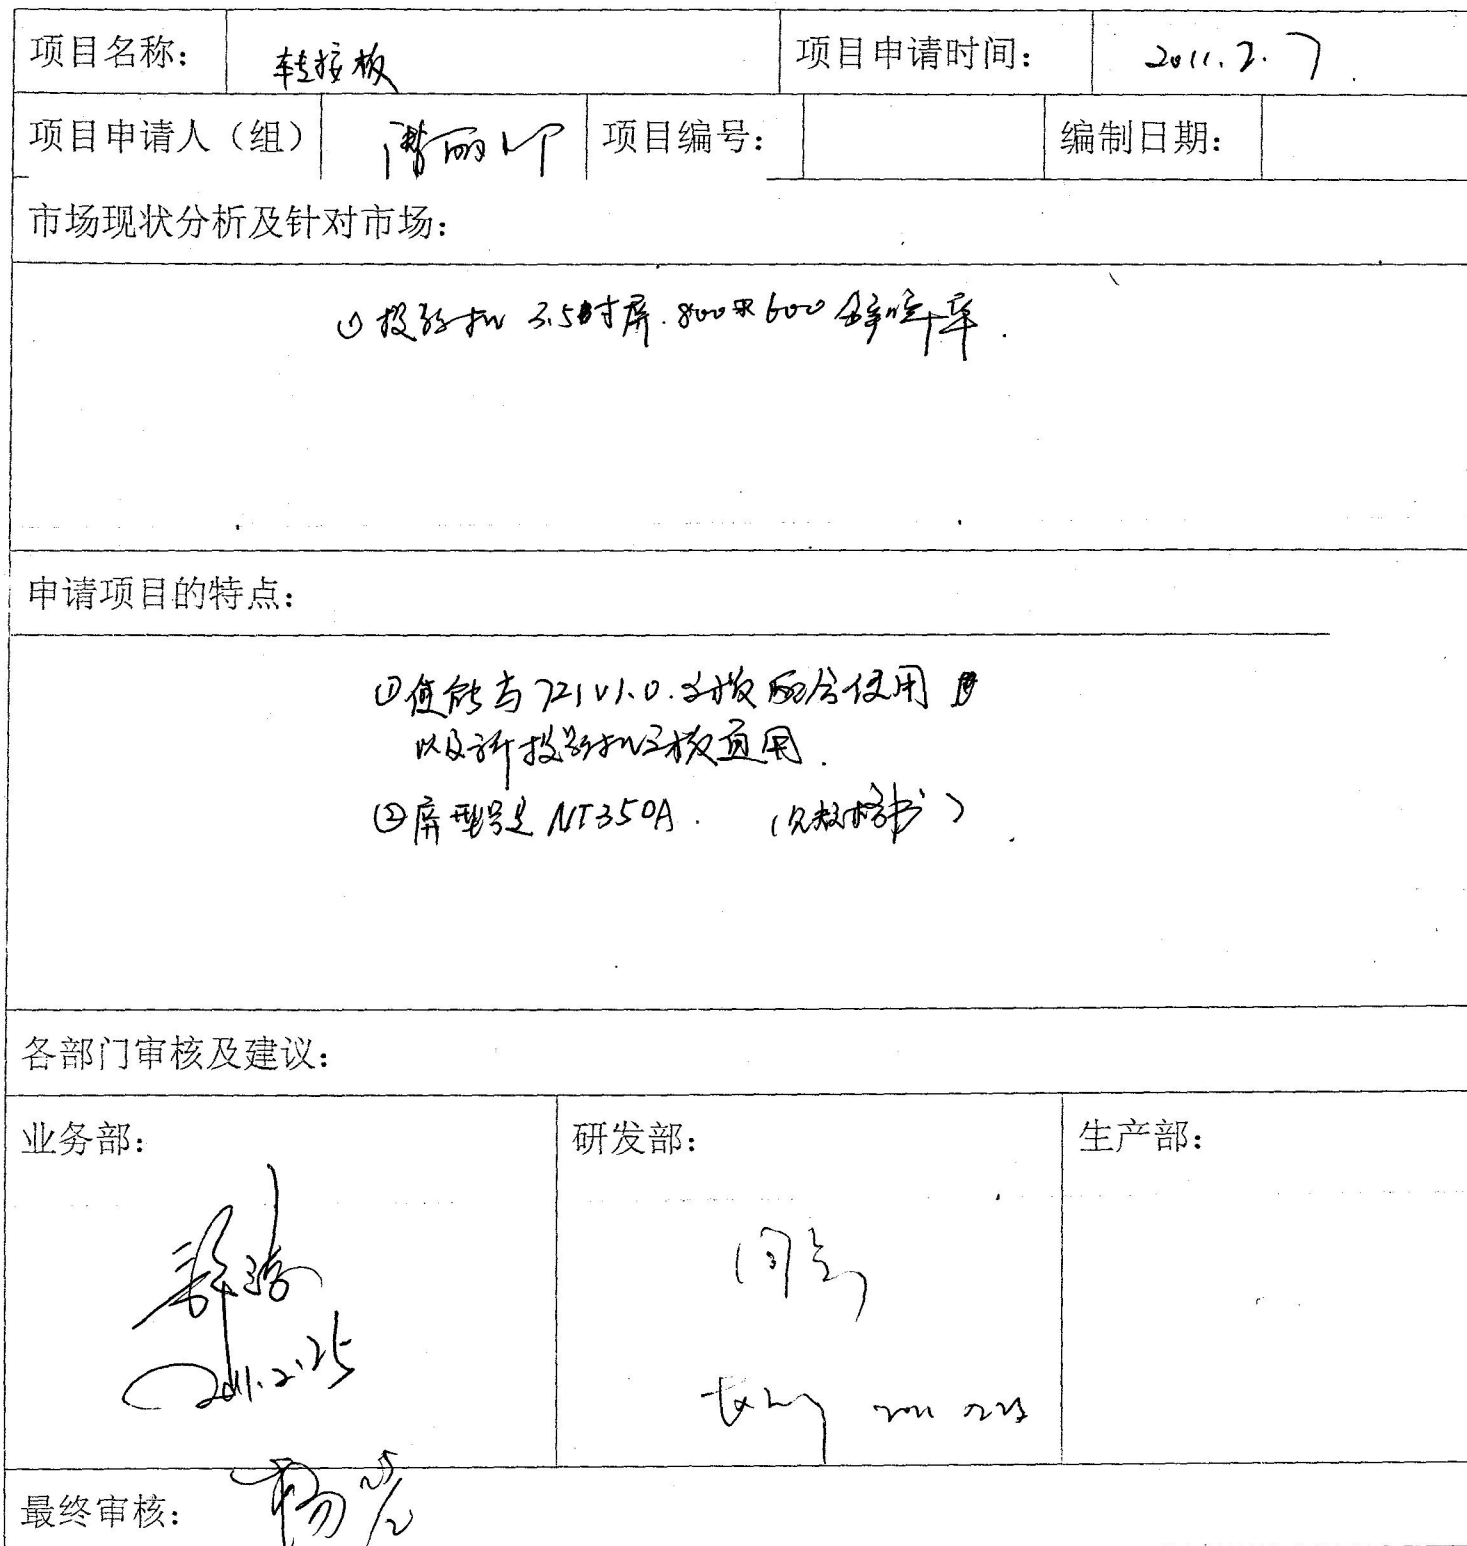 项目名称: 转接板 项目申请时间: 2011.2.7
项目申请人（组） 项目编号: 编制日期:
市场现状分析及针对市场:
① 投影机 3.5寸屏.800*600
申请项目的特点:
①使能与721V1.0.主板配合使用
以及 投影机主板通用.
②屏型号是NT350A. （见规格书）
各部门审核及建议:
业务部: 研发部: 生产部:
同意
2011.2.25
2011
最终审核: 杨